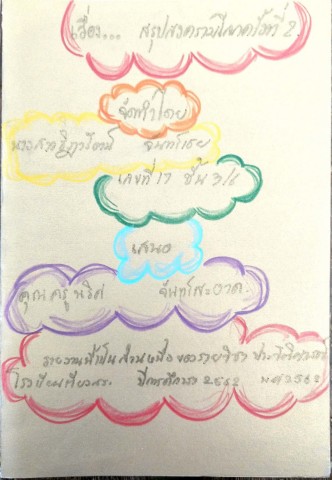 เรื่อง... สรุปสงครามโลกครั้งที่ 2.
จัดทำโดย
นางสาว
เลขที่ 17 ชั้น 3/6
เสนอ
คุณครู จันทร์สะอาด.
รายงานนี้เป็นส่วนหนึ่งของรายวิชา ประวัติศาสตร์
โรงเรียน ปีการศึกษา 2562 พศ 2562